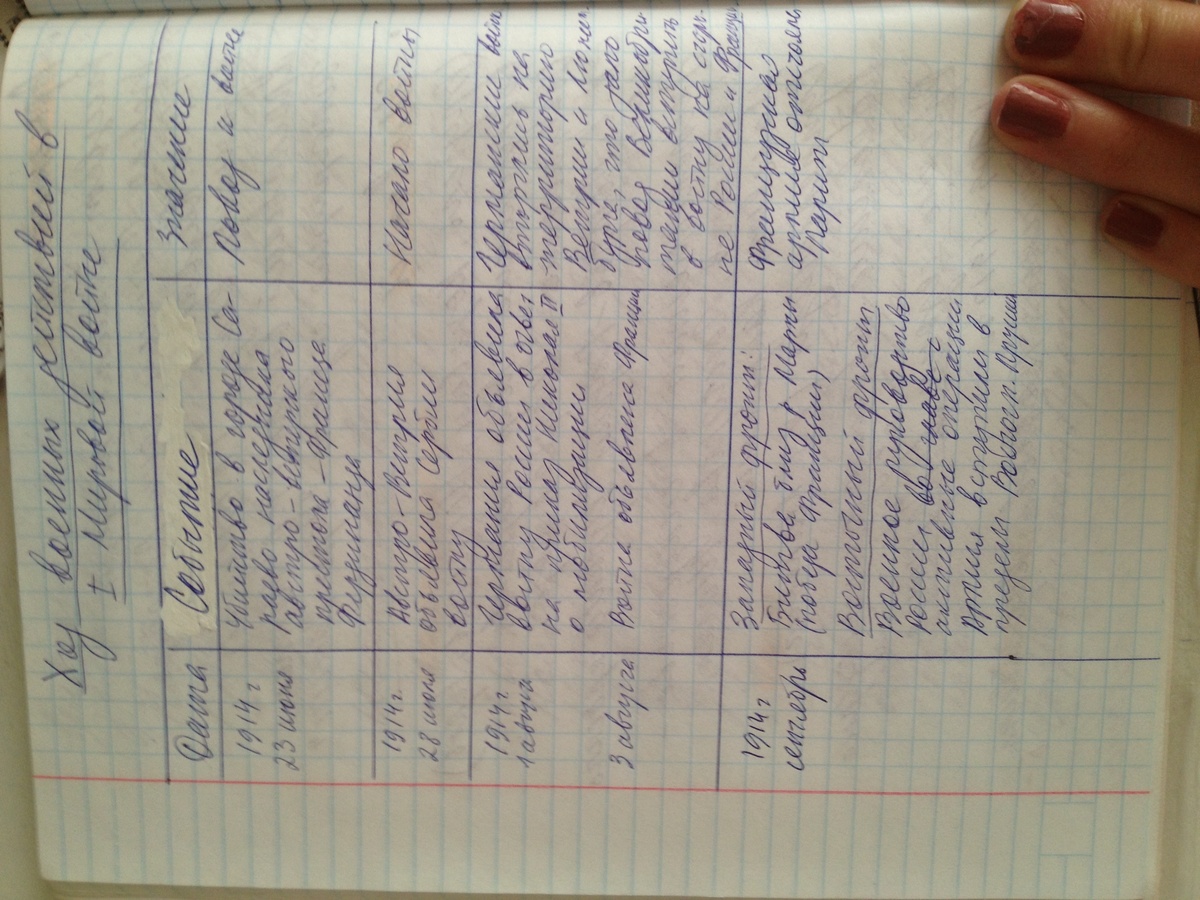 Ход военных действий в
I Мировой войне
Дата Событие Значение
1914 г
23 июня
Убийство в городе Са-
раево наследника
австро-венгрского
престола - Франца
Фердинанда
Повод к войне
1914г.
28 июня
Австро-Венгрия
объявила Сербии
войну
Начало войны
1914 г.
1 августа
Германия объявила
войну России в ответ
на приказ Николая II
о мобилизации
3 августа
Война объявлена Франции
Германские
вторглись на
территорию
это дало
повод Великобри-
тании вступить
в войну на сторо-
не России и Франции
1914 г
сентябрь
Западный фронт:
Битва близ р Марны
(победа Франции)
Восточный фронт
Военное руководство
России
активные операции
Армия вступили в
пределы Восточ. Пруссии
Французская
армия отстояла
Париж